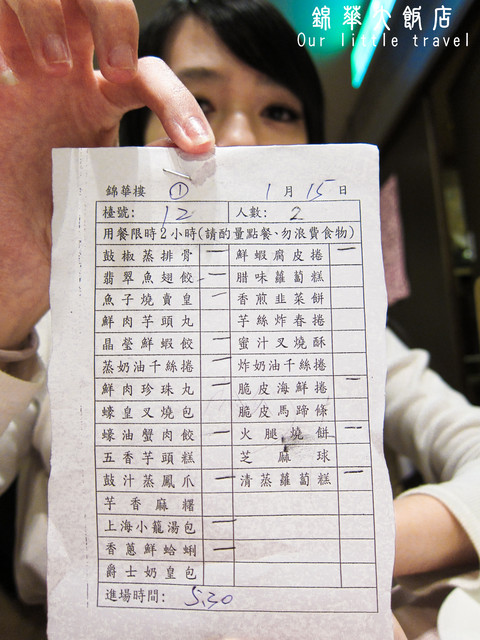 錦華大飯店
Our little travel
錦華樓 ① 1月15日
檯號: 12 人數: 2
用餐限時2小時(請酌量點餐、勿浪費食物)
鼓椒蒸排骨 一 鮮蝦腐皮捲 一
翡翠魚翅餃 一 腊味蘿蔔糕
魚子燒賣皇 一 香煎韭菜餅
鮮肉芋頭丸 芋絲炸春捲
晶瑩鮮蝦餃 一 蜜汁叉燒酥
蒸奶油千絲捲 一 炸奶油千絲捲
鮮肉珍珠丸 一 脆皮海鮮捲 一
蠔皇叉燒包 脆皮馬蹄條
蠔油蟹肉餃 一 火腿燒餅 一
五香芋頭糕 芝麻球
鼓汁蒸鳳爪 一 清蒸蘿蔔糕 一
芋香麻糬
上海小籠湯包 一
香蔥鮮蛤蜊 一
爵士奶皇包
進場時間: 5:30